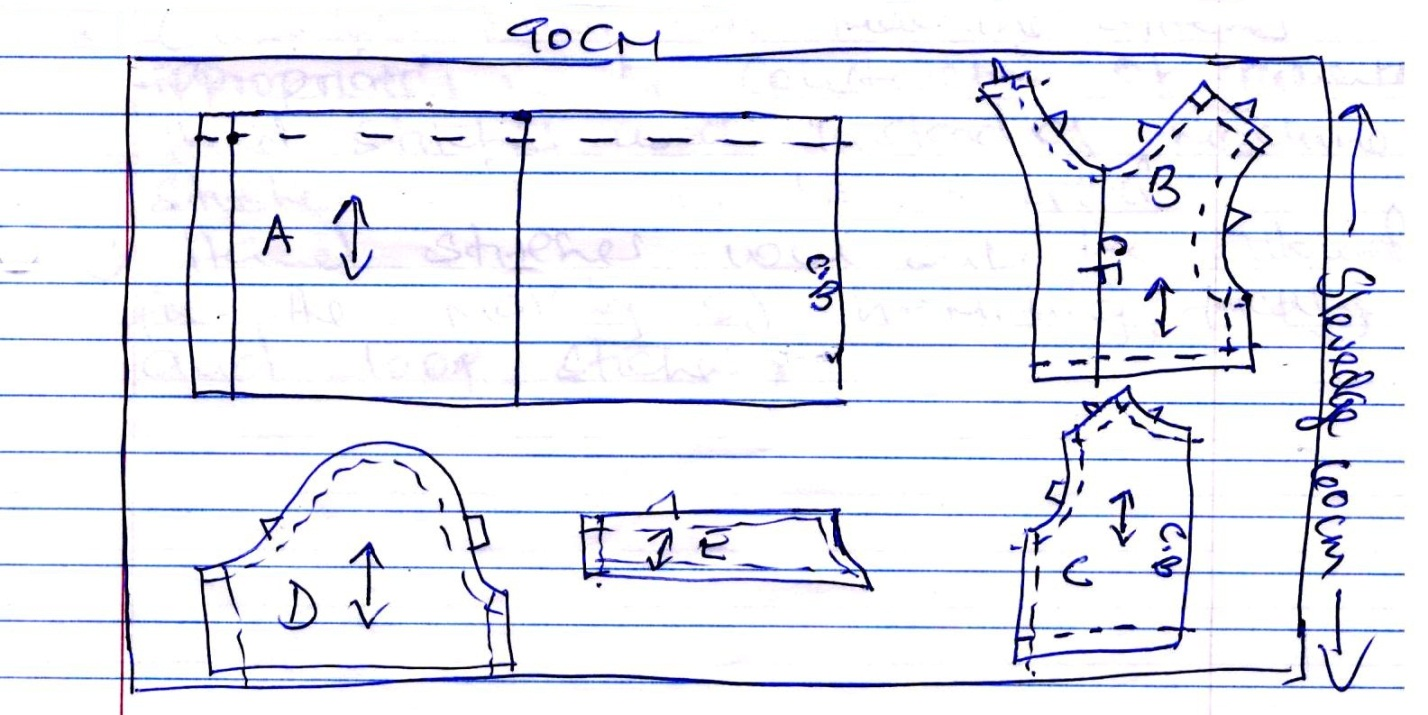 90CM
A
C.B
B
C.F
Selvedge 60cm
D
E
C
C.B